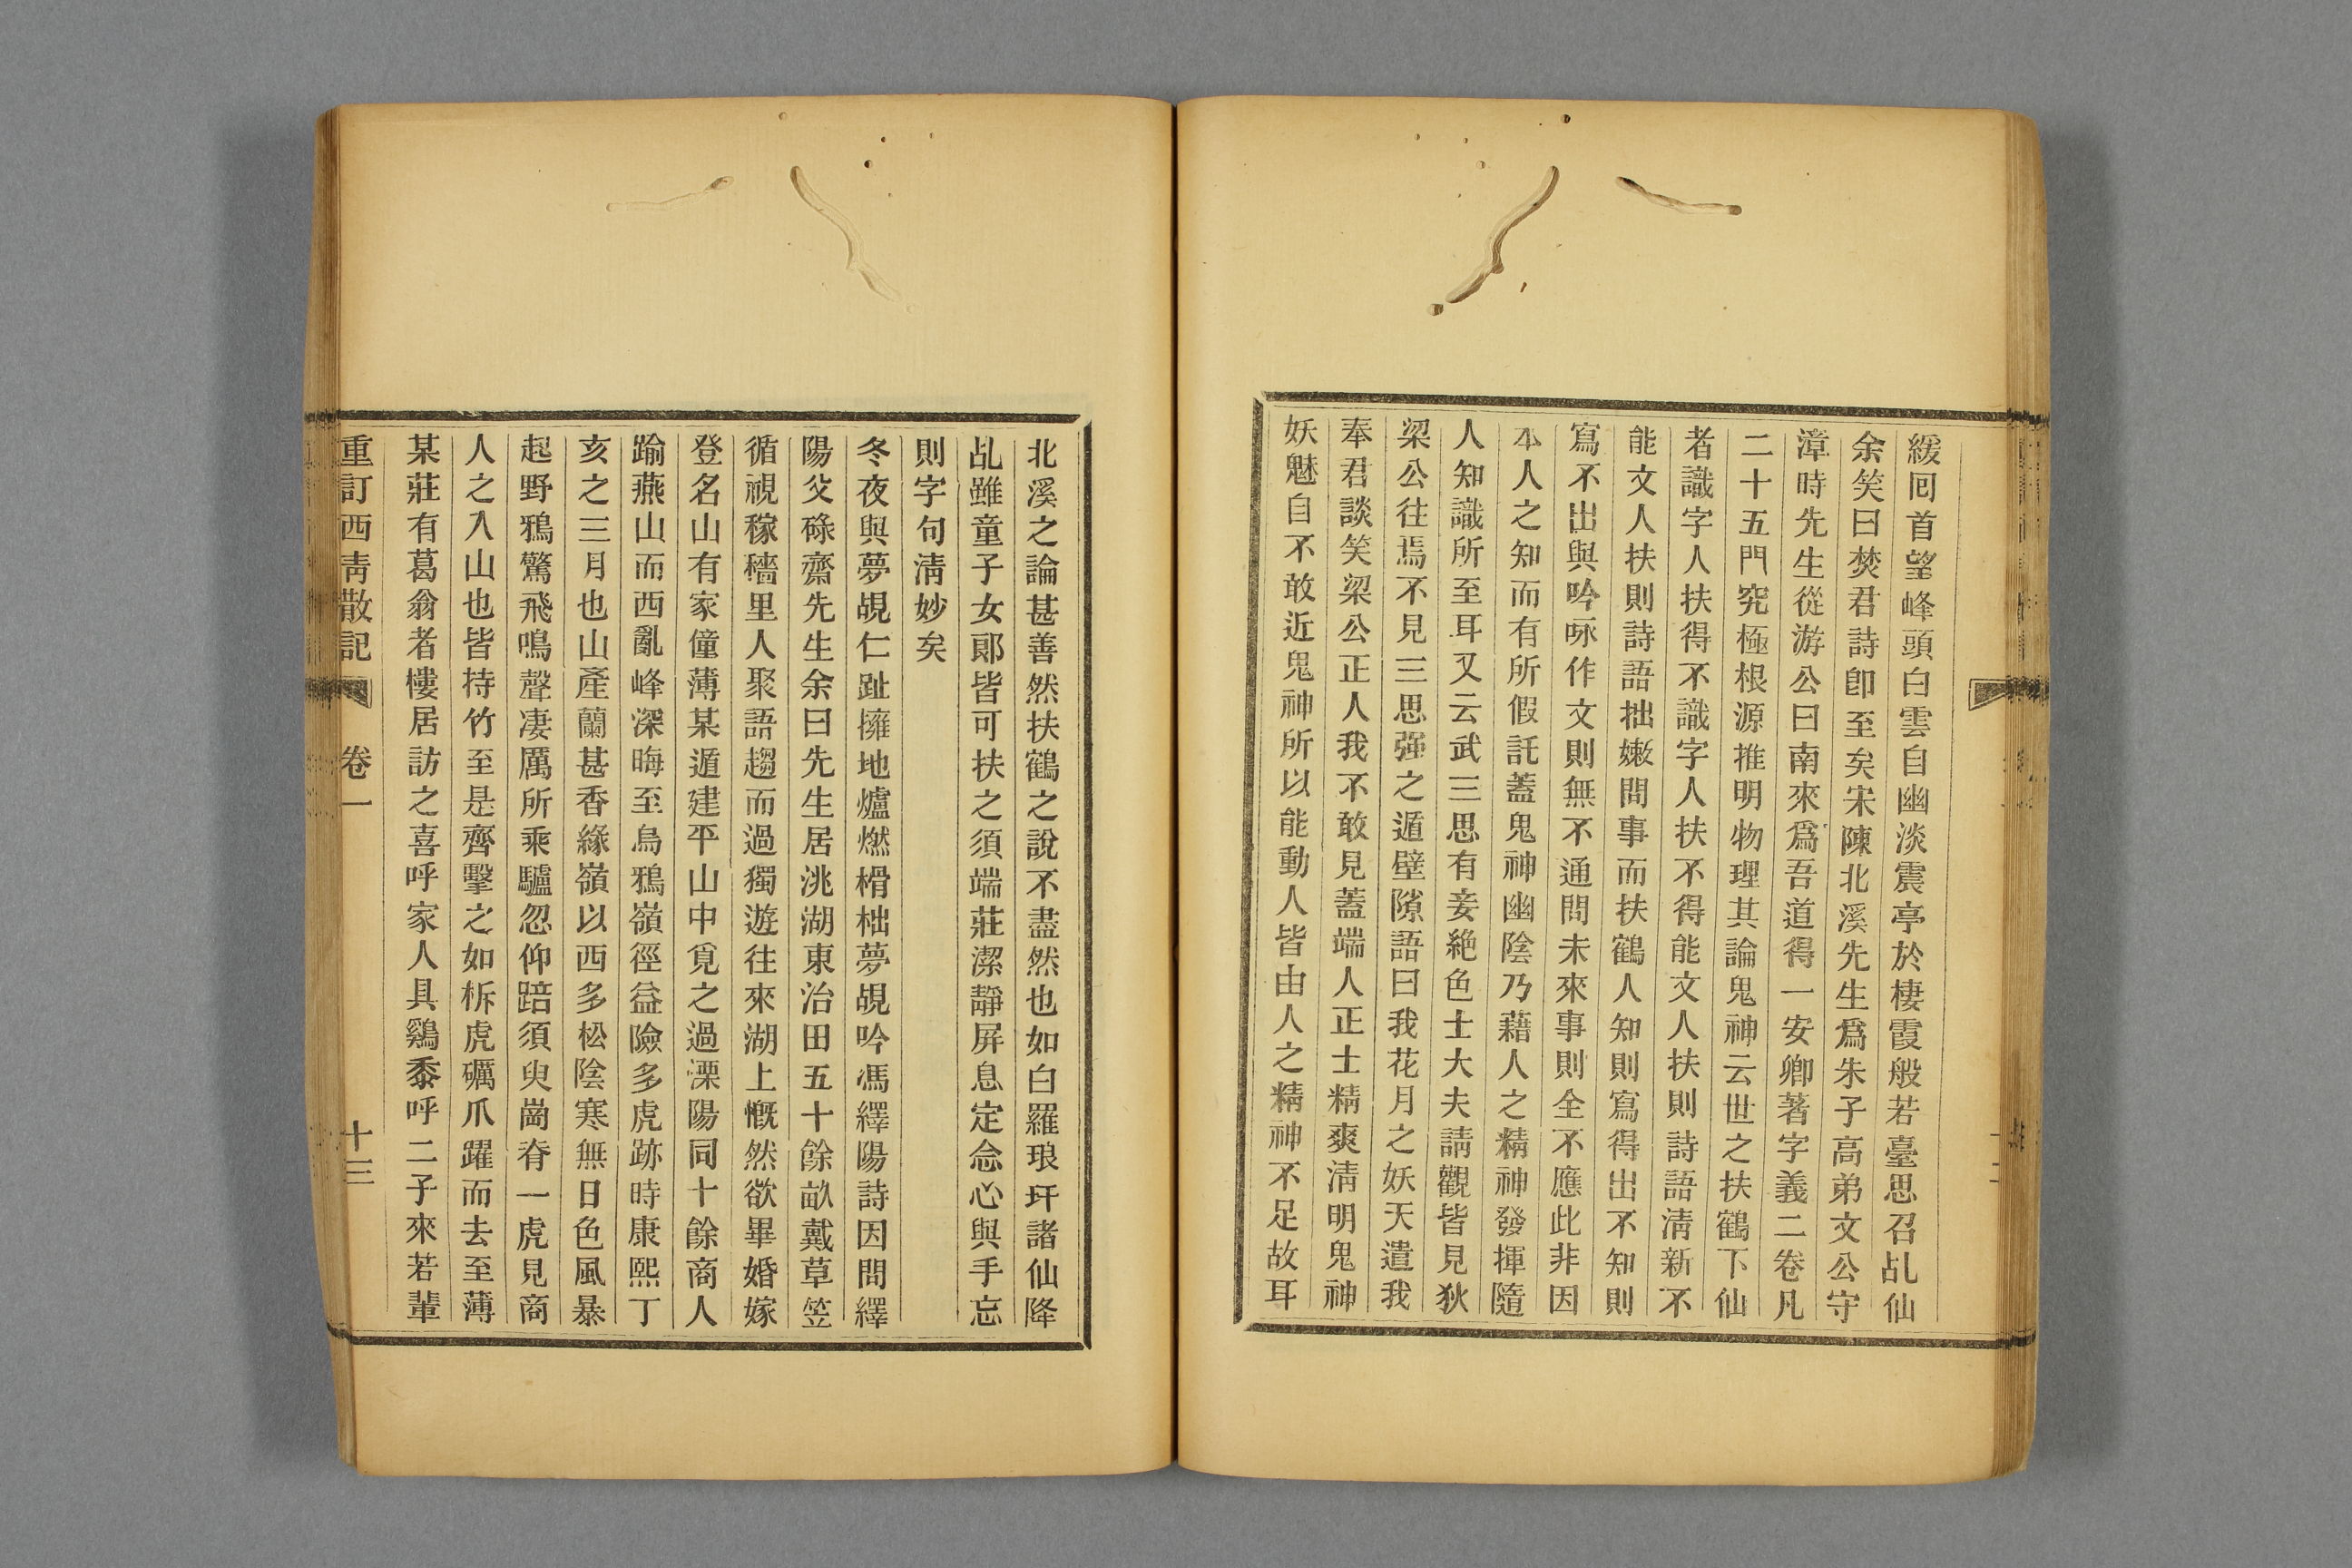 緩囘首望峰頭白雲自幽淡震亭於棲霞般若臺思召乩仙
余笑曰焚君詩卽至矣宋陳北溪先生爲朱子高弟文公守
漳時先生從游公曰南來爲吾道得一安卿著字義二卷凡
二十五門究極根源推明物理其論鬼神云世之扶鶴下仙
者識字人扶得不識字人扶不得能文人扶則詩語淸新不
能文人扶則詩語拙嫩問事而扶鶴人知則寫得出不知則
寫不出與吟咏作文則無不通問未來事則全不應此非因
本人之知而有所假託蓋鬼神幽陰乃藉人之精神發揮隨
人知識所至耳又云武三思有妾絶色士大夫請觀皆見狄
梁公往焉不見三思强之遁壁隙語曰我花月之妖天遣我
奉君談笑梁公正人我不敢見蓋端人正士精爽淸明鬼神
妖魅自不敢近鬼神所以能動人皆由人之精神不足故耳
北溪之論甚善然扶鶴之說不盡然也如白羅琅玕諸仙降
乩雖童子女郞皆可扶之須端莊潔靜屏息定念心與手忘
則字句淸妙矣
冬夜與夢覘仁趾擁地爐燃榾柮夢覘吟馮繹陽詩因問繹
陽父碌齋先生余曰先生居洮湖東治田五十餘畝戴草笠
循視稼穡里人聚語趨而過獨遊往來湖上慨然欲畢婚嫁
登名山有家僮薄某遁建平山中覓之過溧陽同十餘商人
踰燕山而西亂峰深晦至烏鴉嶺徑益險多虎跡時康熙丁
亥之三月也山產蘭甚香緣嶺以西多松陰寒無日色風暴
起野鴉驚飛鳴聲凄厲所乘驢忽仰踣須臾崗脊一虎見商
人之入山也皆持竹至是齊擊之如柝虎礪爪躍而去至薄
某莊有葛翁者樓居訪之喜呼家人具鷄黍呼二子來若輩
重訂西靑散記 卷一 十三